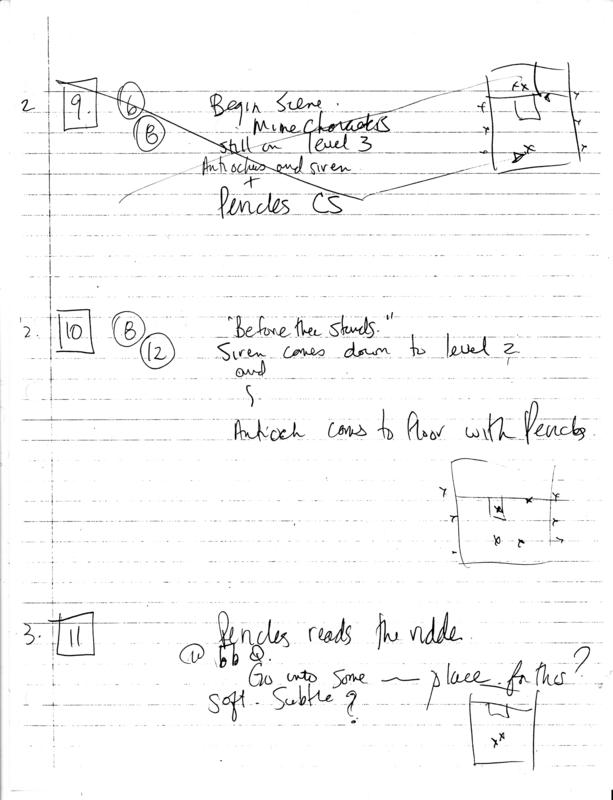 2 9. 6 Begin Scene.
B Mime Characters
still on level 3
Antiochus and siren
+
Pericles CS
2. 10 B "Before thee stands."
12 Siren comes down to level 2
and
Antioch comes to floor with Pericles
3. 11 Pericles reads the riddle.
Go into some place for this?
soft. Subtle?